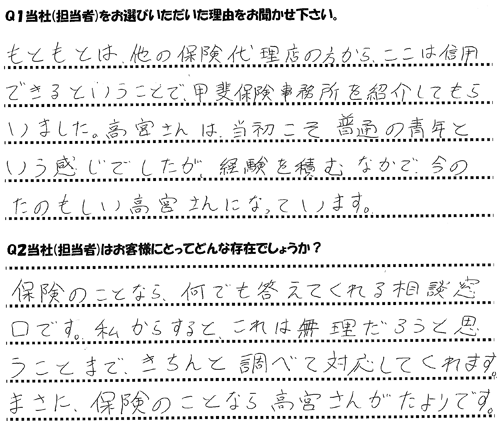 Q1当社(担当者)をお選びいただいた理由をお聞かせ下さい。
もともとは、他の保険代理店の方から、ここは信用
できるということで、甲斐保険事務所を紹介してもら
いました。高宮さんは、当初こそ普通の青年と
いう感じでしたが、経験を積むなかで、今の
たのもしい高宮さんになっています。
Q2当社(担当者)はお客様にとってどんな存在でしょうか？
保険のことなら、何でも答えてくれる相談窓
口です。私からすると、これは無理だろうと思
うことまで、きちんと調べて対応してくれます。
まさに、保険のことなら高宮さんがたよりです。